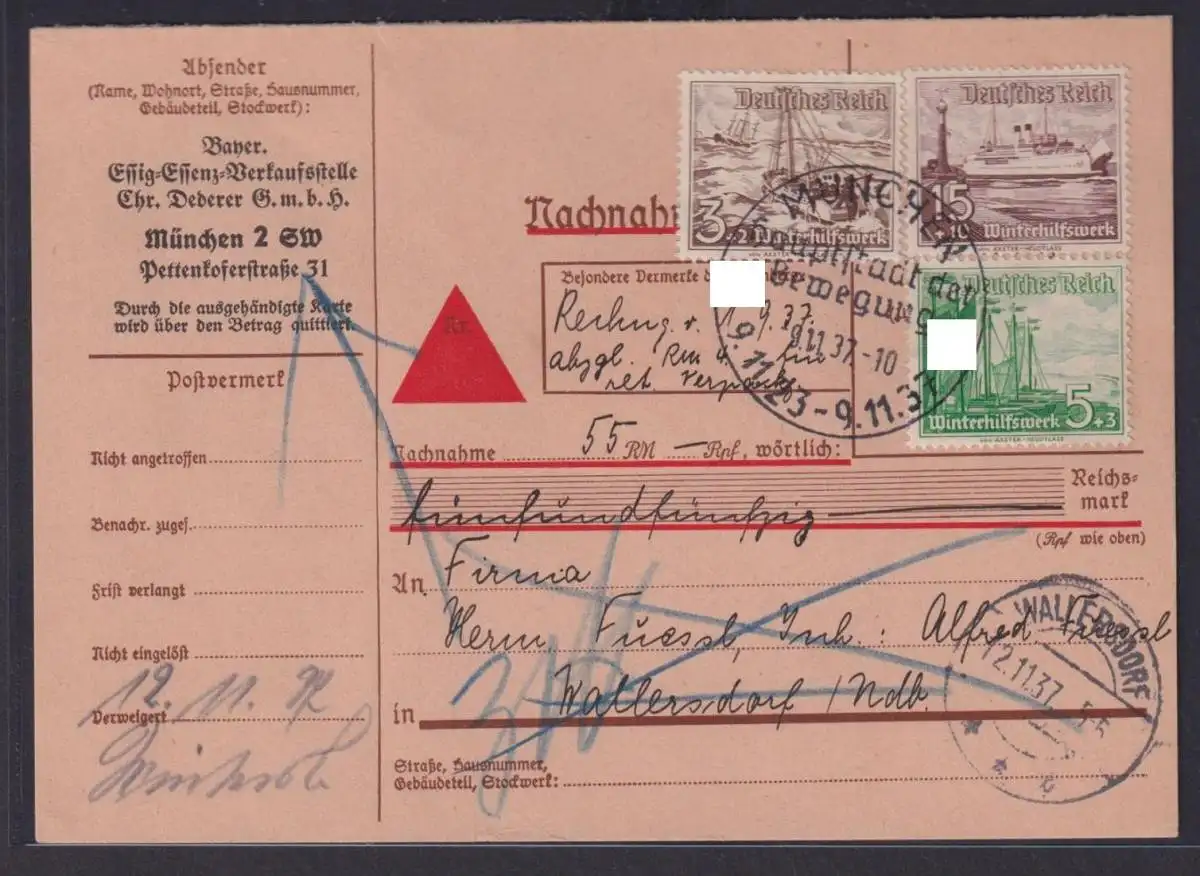 Absender
(Name, Wohnort, Straße, Hausnummer,
Gebäudeteil, Stockwerk):
Bayer.
Essig-Essenz-Verkaufsstelle
Chr. Dederer G.m.b.H.
München 2 SW
Pettenkoferstraße 31
Durch die ausgehändigte Karte
wird über den Betrag quittiert.
Postvermerk
Nicht angetroffen
Benachr. zuges.
Frist verlangt
Nicht eingelöst
12. 11. 37
Verweigert
Nachnahm
Deutsches Reich
3 Winterhilfswerk
Deutsches Reich
15 +10 Winterhilfswerk
Deutsches Reich
5+3
Winterhilfswerk
MÜNCHEN
Hauptstadt der
Bewegung
9.11.37.-10
9.11.23-9.11.37
Besondere Vermerke
Rechng. v. 1.9.37.
abzgl. RM
ret. Verpack
Nr.
Nachnahme 55 RM — Rpf, wörtlich:
fünfundfünfzig
Reichs-
mark
(Rpf wie oben)
An Firma
Herm. Fuessl, Inh.: Alfred Fuessl
in Wallersdorf/Ndb.
Straße, Hausnummer,
Gebäudeteil, Stockwerk:
WALLERSDORF
12.11.37. 5-5